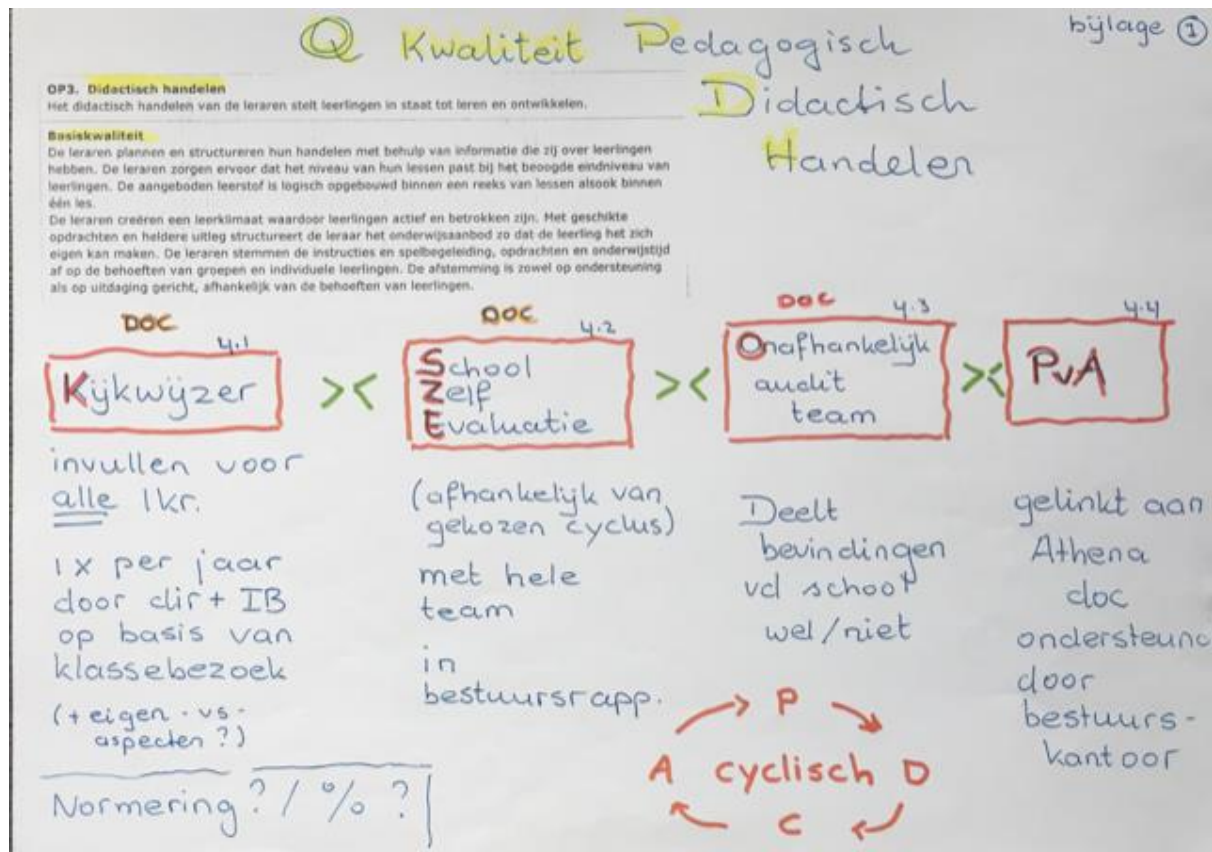 bijlage ①
Q Kwaliteit Pedagogisch
Didactisch
Handelen
OP3. Didactisch handelen
Het didactisch handelen van de leraren stelt leerlingen in staat tot leren en ontwikkelen.
Basiskwaliteit
De leraren plannen en structureren hun handelen met behulp van informatie die zij over leerlingen
hebben. De leraren zorgen ervoor dat het niveau van hun lessen past bij het beoogde eindniveau van
leerlingen. De aangeboden leerstof is logisch opgebouwd binnen een reeks van lessen alsook binnen
één les.
De leraren creëren een leerklimaat waardoor leerlingen actief en betrokken zijn. Met geschikte
opdrachten en heldere uitleg structureert de leraar het onderwijsaanbod zo dat de leerling het zich
eigen kan maken. De leraren stemmen de instructies en spelbegeleiding, opdrachten en onderwijstijd
af op de behoeften van groepen en individuele leerlingen. De afstemming is zowel op ondersteuning
als op uitdaging gericht, afhankelijk van de behoeften van leerlingen.
DOC
4.1
Kijkwijzer
invullen voor
alle lkr.
1x per jaar
door dir + IB
op basis van
klassebezoek
(+ eigen - vs -
aspecten ?)
Normering ? / % ?
><
DOC
4.2
School
Zelf
Evaluatie
(afhankelijk van
gekozen cyclus)
met hele
team
in
bestuursrapp.
><
DOC
4.3
Onafhankelijk
audit
team
Deelt
bevindingen
vd school
wel/niet
><
4.4
PvA
gelinkt aan
Athena
doc
ondersteund
door
bestuurs-
kantoor
P
A cyclisch D
C